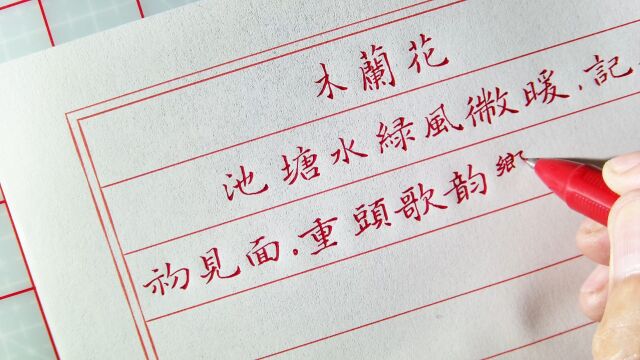 木蘭花
池塘水緑風微暖.記
初見面.重頭歌韵鄉